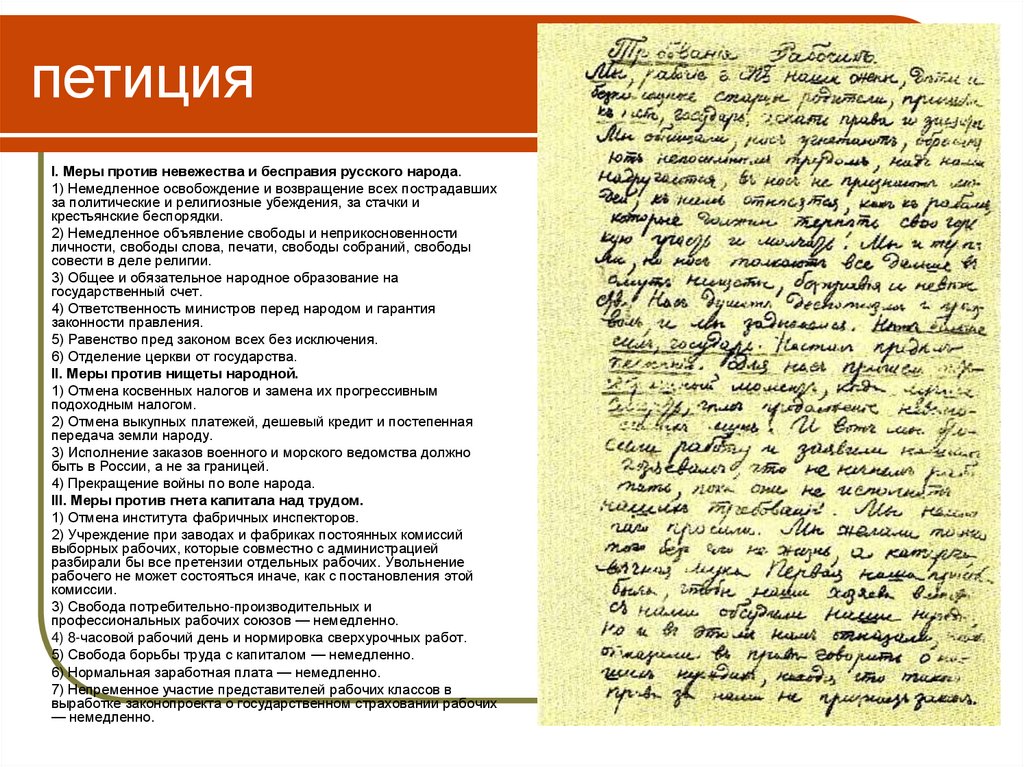 петиция
I. Меры против невежества и бесправия русского народа.
1) Немедленное освобождение и возвращение всех пострадавших
за политические и религиозные убеждения, за стачки и
крестьянские беспорядки.
2) Немедленное объявление свободы и неприкосновенности
личности, свободы слова, печати, свободы собраний, свободы
совести в деле религии.
3) Общее и обязательное народное образование на
государственный счет.
4) Ответственность министров перед народом и гарантия
законности правления.
5) Равенство пред законом всех без исключения.
6) Отделение церкви от государства.
II. Меры против нищеты народной.
1) Отмена косвенных налогов и замена их прогрессивным
подоходным налогом.
2) Отмена выкупных платежей, дешевый кредит и постепенная
передача земли народу.
3) Исполнение заказов военного и морского ведомства должно
быть в России, а не за границей.
4) Прекращение войны по воле народа.
III. Меры против гнета капитала над трудом.
1) Отмена института фабричных инспекторов.
2) Учреждение при заводах и фабриках постоянных комиссий
выборных рабочих, которые совместно с администрацией
разбирали бы все претензии отдельных рабочих. Увольнение
рабочего не может состояться иначе, как с постановления этой
комиссии.
3) Свобода потребительно-производительных и
профессиональных рабочих союзов — немедленно.
4) 8-часовой рабочий день и нормировка сверхурочных работ.
5) Свобода борьбы труда с капиталом — немедленно.
6) Нормальная заработная плата — немедленно.
7) Непременное участие представителей рабочих классов в
выработке законопроекта о государственном страховании рабочих
— немедленно.
Рабочихъ.
Мы, наши жены, дети и
старцы родители, пришли
государь, искати права и
Мы обнищали, насъ угнетаютъ,
ютъ непосильнымъ трудомъ, надъ нами
надругаются, въ насъ не признаютъ
къ намъ относятся, какъ къ рабамъ,
которые должны терпѣть свою
кую участь и молчать! Мы и
но насъ толкаютъ все дальше въ
омутъ нищеты,
Насъ душитъ деспотизмъ и
и мы задыхаемся.
силъ, государь. Насталъ
Для насъ пришелъ
моментъ, когда
И вотъ мы
работу и заявили
что не начнемъ
пока они не исполнятъ
нашихъ требованій. Мы
просили. Мы желали
безъ чего не жизнь, а
мука. Первая наша
была, чтобы наши хозяева
съ нами обсудили наши
Но и въ этомъ намъ отказали,
отказали въ правѣ говорить о
за нами не